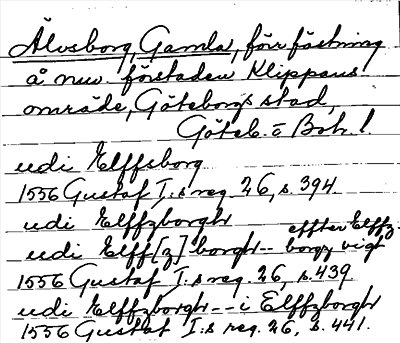 Älvsborg, Gamla, förr fästning
å nuv. förstaden Klippans
område, Göteborgs stad,
Göteb. o Boh. l.
udi Elffsborg
1556 Gustaf I:s reg. 26, s. 394
udi Elffzborgh
udi Elff[z]borgh -- effter Elffz-
borgz vigt
1556 Gustaf I:s reg. 26, s. 439
udi Elffzborgh -- i Elffzborgh
1556 Gustaf I:s reg. 26, s. 441.